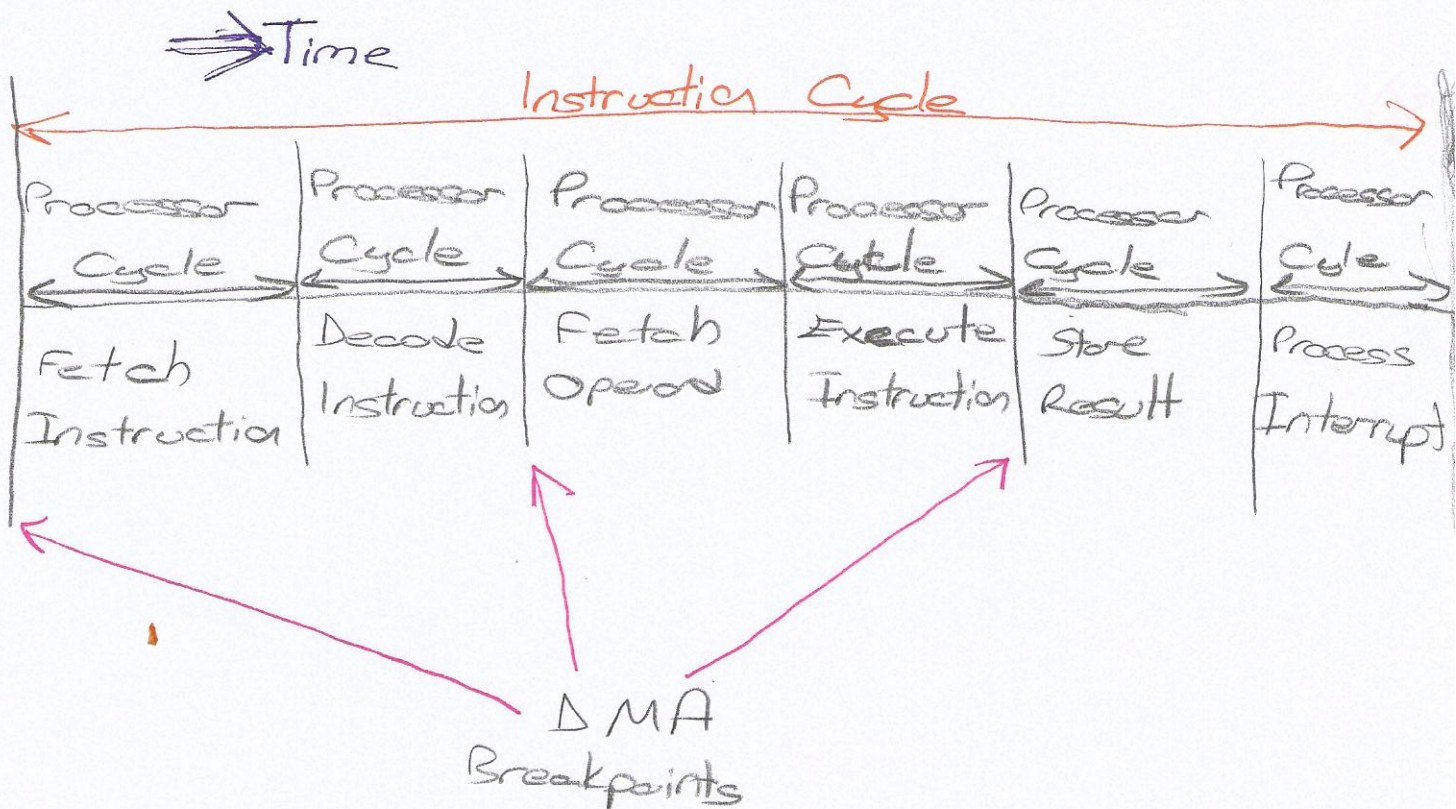 Time
Instruction Cycle
Processor
Cycle
Processor
Cycle
Processor
Cycle
Processor
Cycle
Processor
Cycle
Processor
Cyle
Fetch
Instruction
Decode
Instruction
Fetch
Operod
Execute
Instruction
Store
Result
Process
Interrupt
DMA
Breakpoints